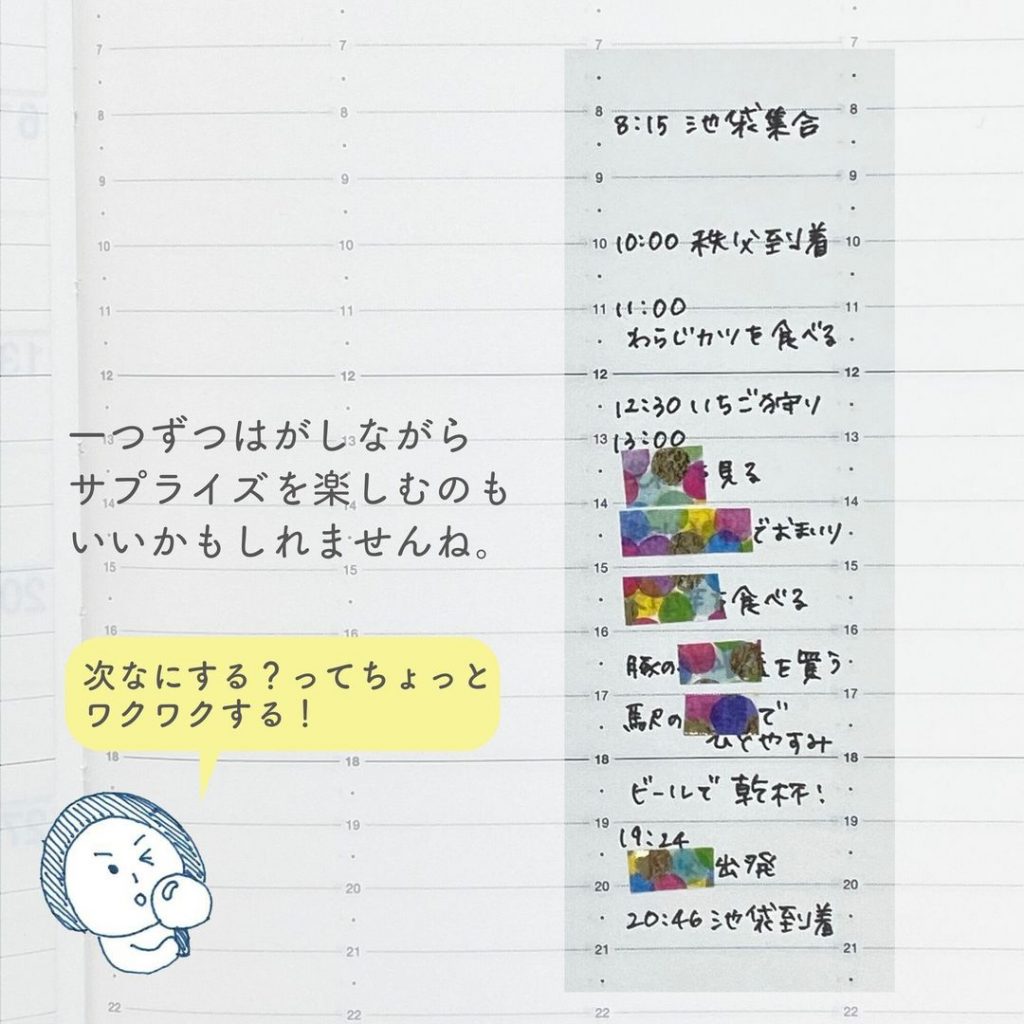 7 7 7 7
8 8 8 8
8:15 池袋集合
9 9 9 9
10 10 10 10
10:00 秩父到着
11 11 11 11
11:00
わらじカツを食べる
12 12 12 12
12:30 いちご狩り
13 13 13 13
13:00
見る
14 14 14 14
でおまいり
15 15 15 15
食べる
16 16 16 16
豚の を買う
17 17
駅の で
ひとやすみ
18 18 18 18
ビールで乾杯!
19 19 19
19:24
出発
20 20 20
20:46 池袋到着
21 21 21
22 22 22 22
一つずつはがしながら
サプライズを楽しむのも
いいかもしれませんね。
次なにする?ってちょっと
ワクワクする!